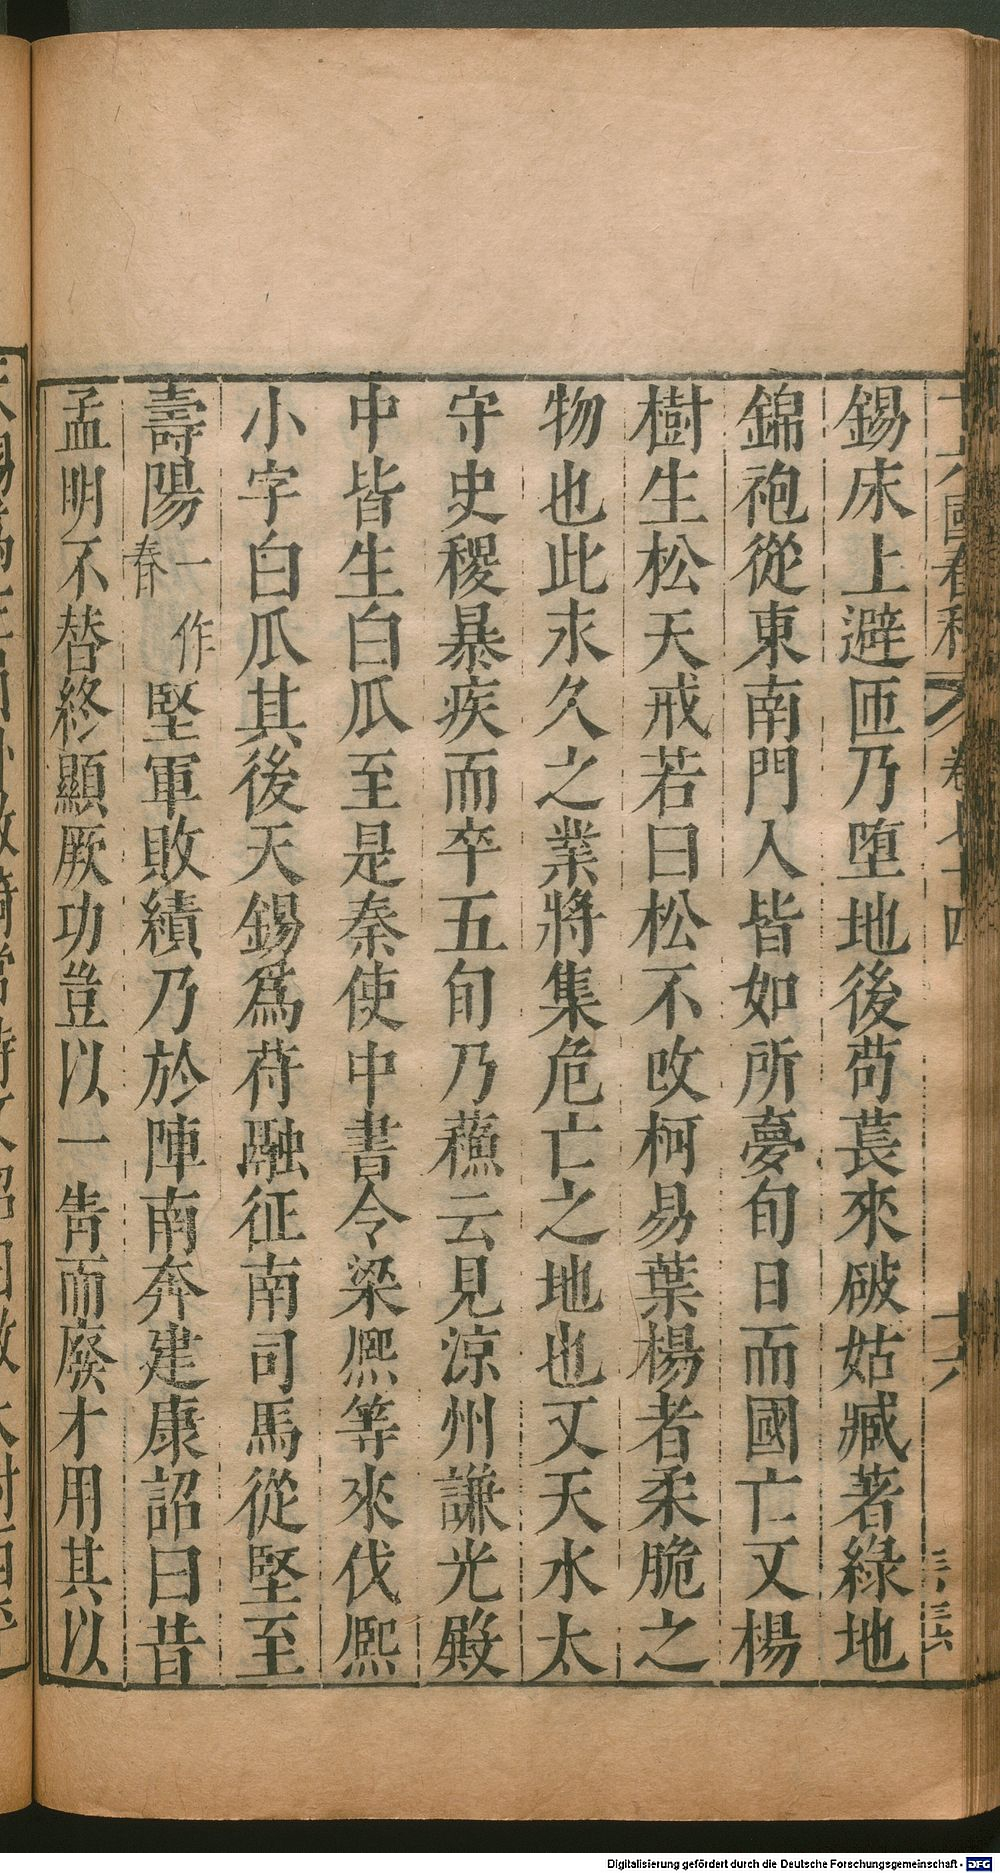 錫床上避匝乃墮地後苟萇來破姑臧著綠地
錦袍從東南門入皆如所夢旬日而國亡又楊
樹生松天戒若曰松不改柯易葉楊者柔脆之
物也此永久之業將集危亡之地也又天水太
守史稷暴疾而卒五旬乃蘓云見涼州謙光殿
中皆生白瓜至是秦使中書令梁熙等來伐熙
小字白瓜其後天錫爲苻融征南司馬從堅至
壽陽一作春堅軍敗績乃於陣南奔建康詔曰昔
孟明不替終顯厥功豈以一眚而廢才用其以
十六國春秋 卷七十四 十六
Digitalisierung gefördert durch die Deutsche Forschungsgemeinschaft - DFG